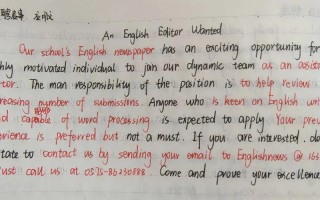 An English Editor Wanted
Our school's English newspaper has an exciting opportunity for
hly motivated individual to join our dynamic team as an assista
tor. The man responsibility of the position is to help review
creasing number of submissions. Anyone who is keen on English writ
nd capable of word processing is expected to apply. Your prev
perience is preferred but not a must. If you are interested, do
tate to contact us by sending your email to Englishnews @ 166
ust call us at 0575-86250888. Come and prove your excellence